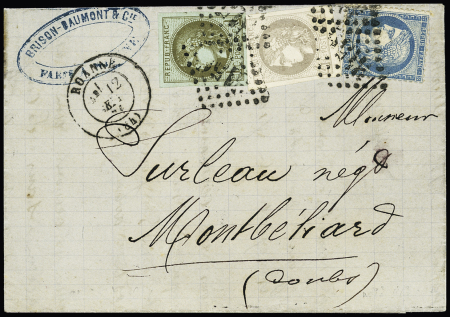 BRISON-DAUMONT & CIE
ROANNE
12
(84)
REPUB. FRANC.
Monsieur
Surleau négt
Montbéliard
(Doubs)